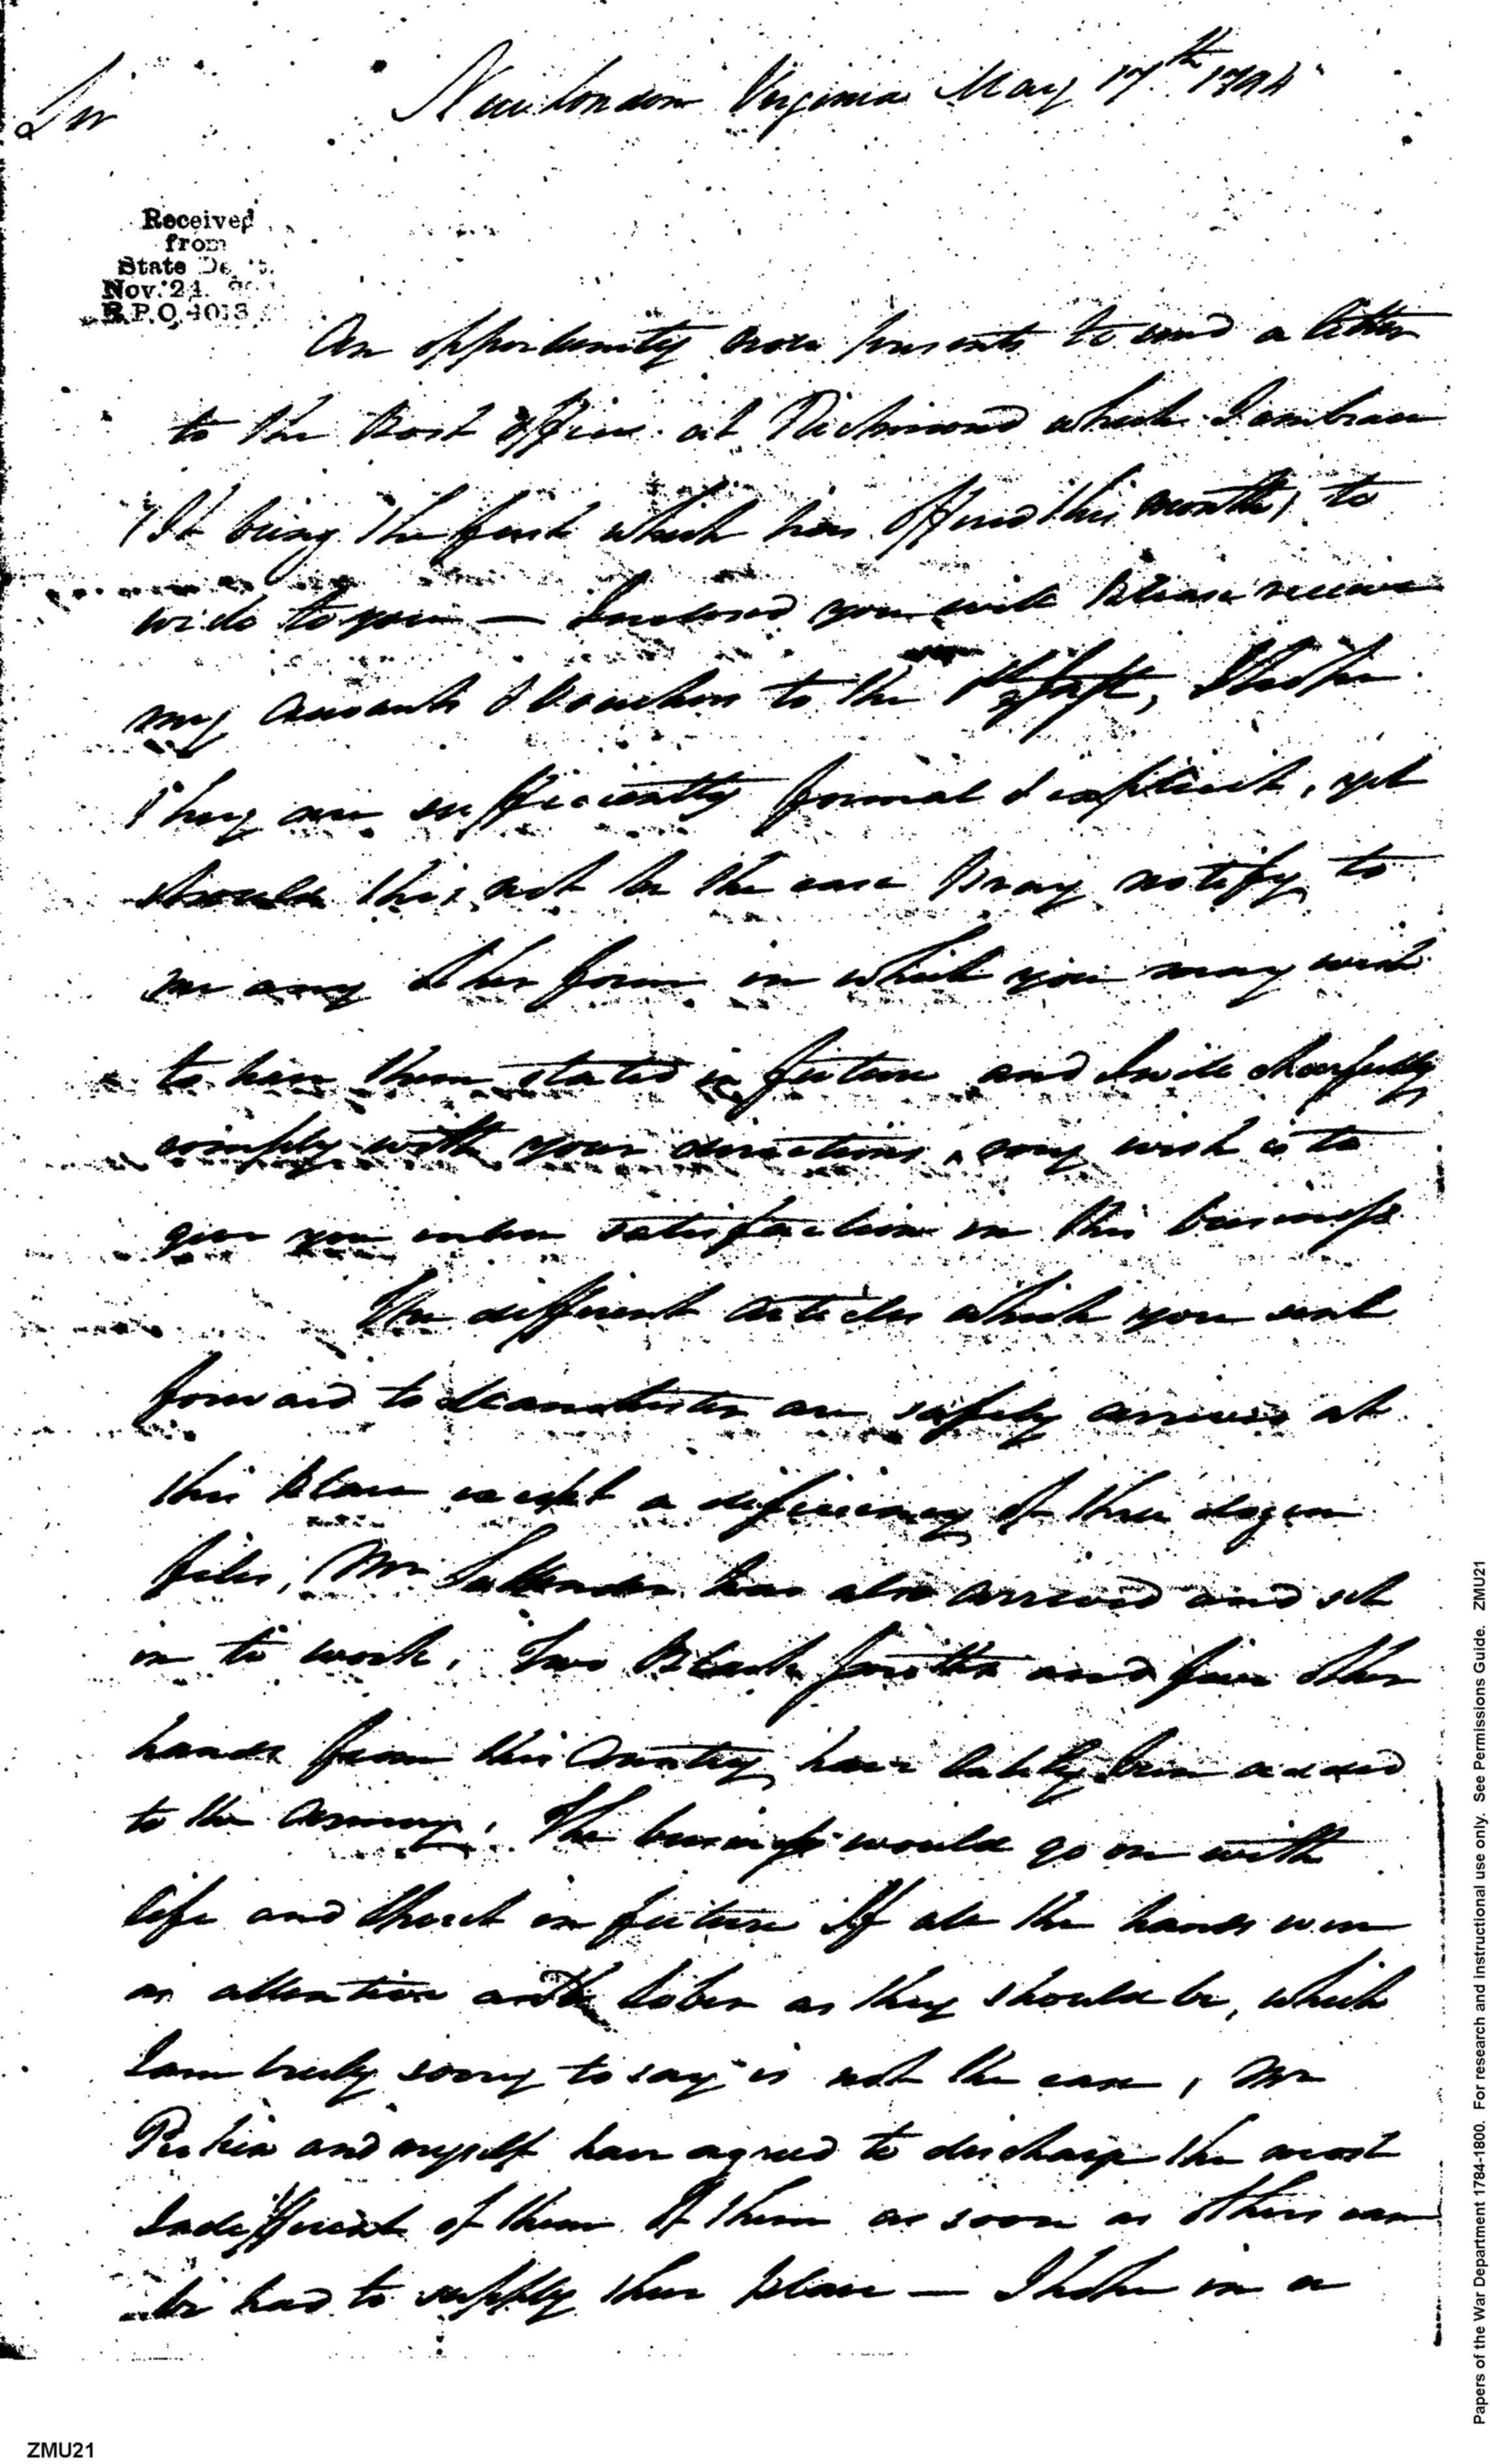 Sir
New London Virginia May 17th 1794
Received
from
State De
Nov. 24.
R.P.O. 4013
An opportunity now presents to send a letter
to the Post office at Richmond which I embrace
(It being the first which has offered this month) to
write to you — Inclosed you will please receive
my accounts & Vouchers to the 1st , I hope
they are sufficiently formal & explicit, yet
should this not be the case pray notify to
me any other form in which you may wish
to have them stated in future and I will chearfully
comply with your directions, my wish is to
give you entire satisfaction in this business
The different articles which you sent
forward to Manchester are safely arrived at
this place except a deficiency of three dozen
files, Mr has also arrived and set
in to work, Two Black Smiths and five other
hands from this Country have lately been added
to the Armory. The business would go on with
life and in future If all the hands were
as attentive and sober as they should be, which
I am truly sorry to say is not the case, Mr
Perkin and myself have agreed to discharge the most
Indifferent of them of them as soon as others can
be had to supply their place — I hope in a
Papers of the War Department 1784-1800. For research and instructional use only. See Permissions Guide. ZMU21
ZMU21